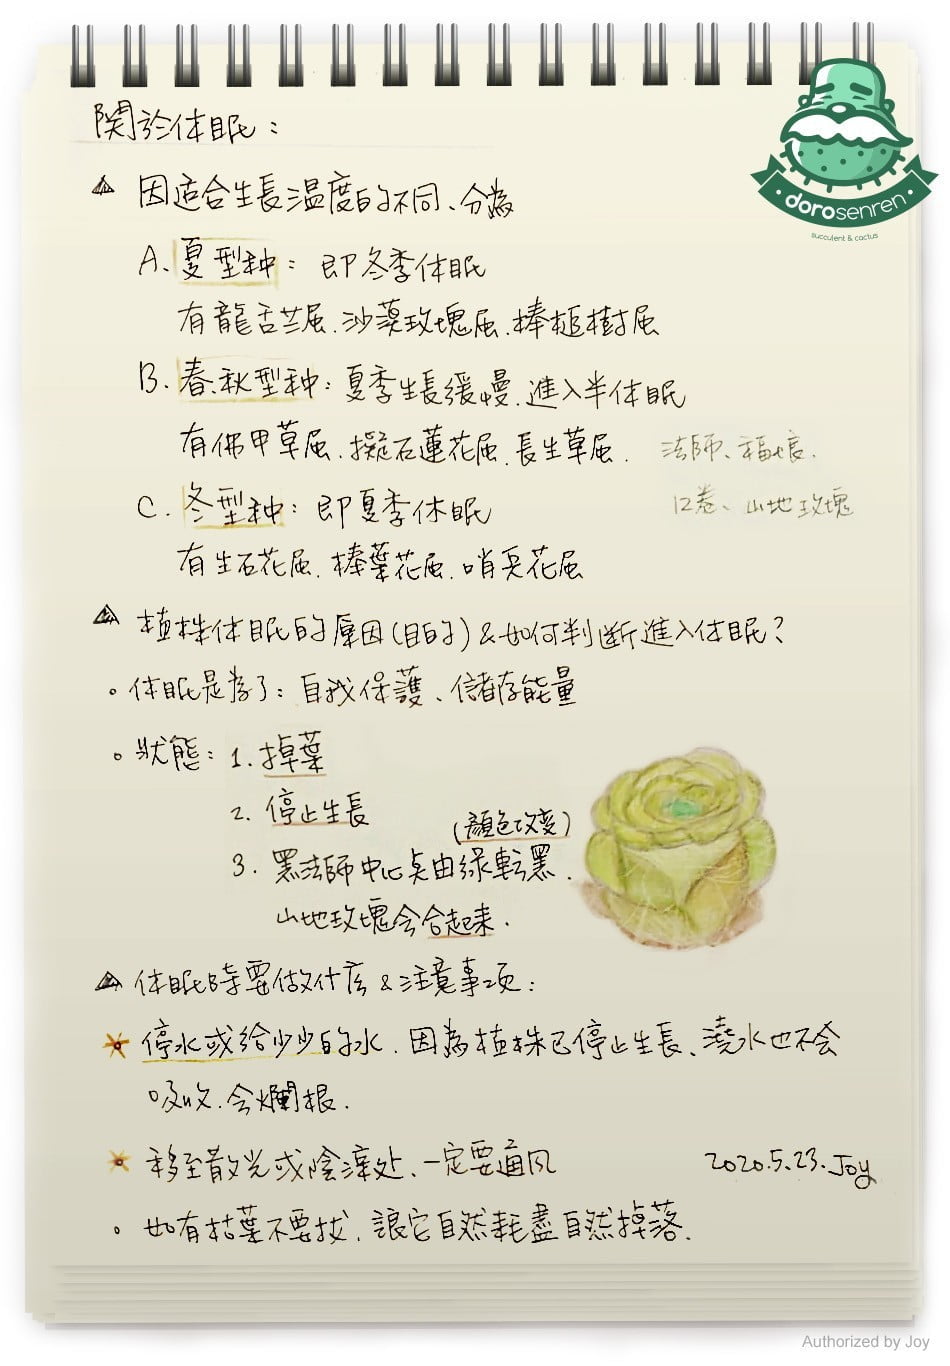 dorosenren
succulent & cactus
関於休眠：
因適合生長温度的不同、分為
A. 夏型种：即冬季休眠
有龍舌兰屆、沙漠玫瑰屆、棒槌樹屆
B. 春秋型种：夏季生長緩慢、進入半休眠
有佛甲草屆、擬石蓮花屆、長生草屆、法師、福娘、
C. 冬型种：即夏季休眠 12卷、山地玫瑰
有生石花屆、棒葉花屆、哨兵花屆
植株休眠的原因(目的)&如何判断進入休眠？
。休眠是為了：自我保護、儲存能量
。狀態：1. 掉葉
2. 停止生長
(顏色改变)
3. 黑法師中心点由绿転黑、
山地玫瑰会合起来、
休眠時要做什么&注意事项：
停水或给少少的水、因為植株已停止生長、澆水也不会
吸收、会爛根、
移至散光或陰凉处、一定要通风
2020.5.23.Joy
。如有枯葉不要拔、讓它自然耗盡自然掉落、
Authorized by Joy